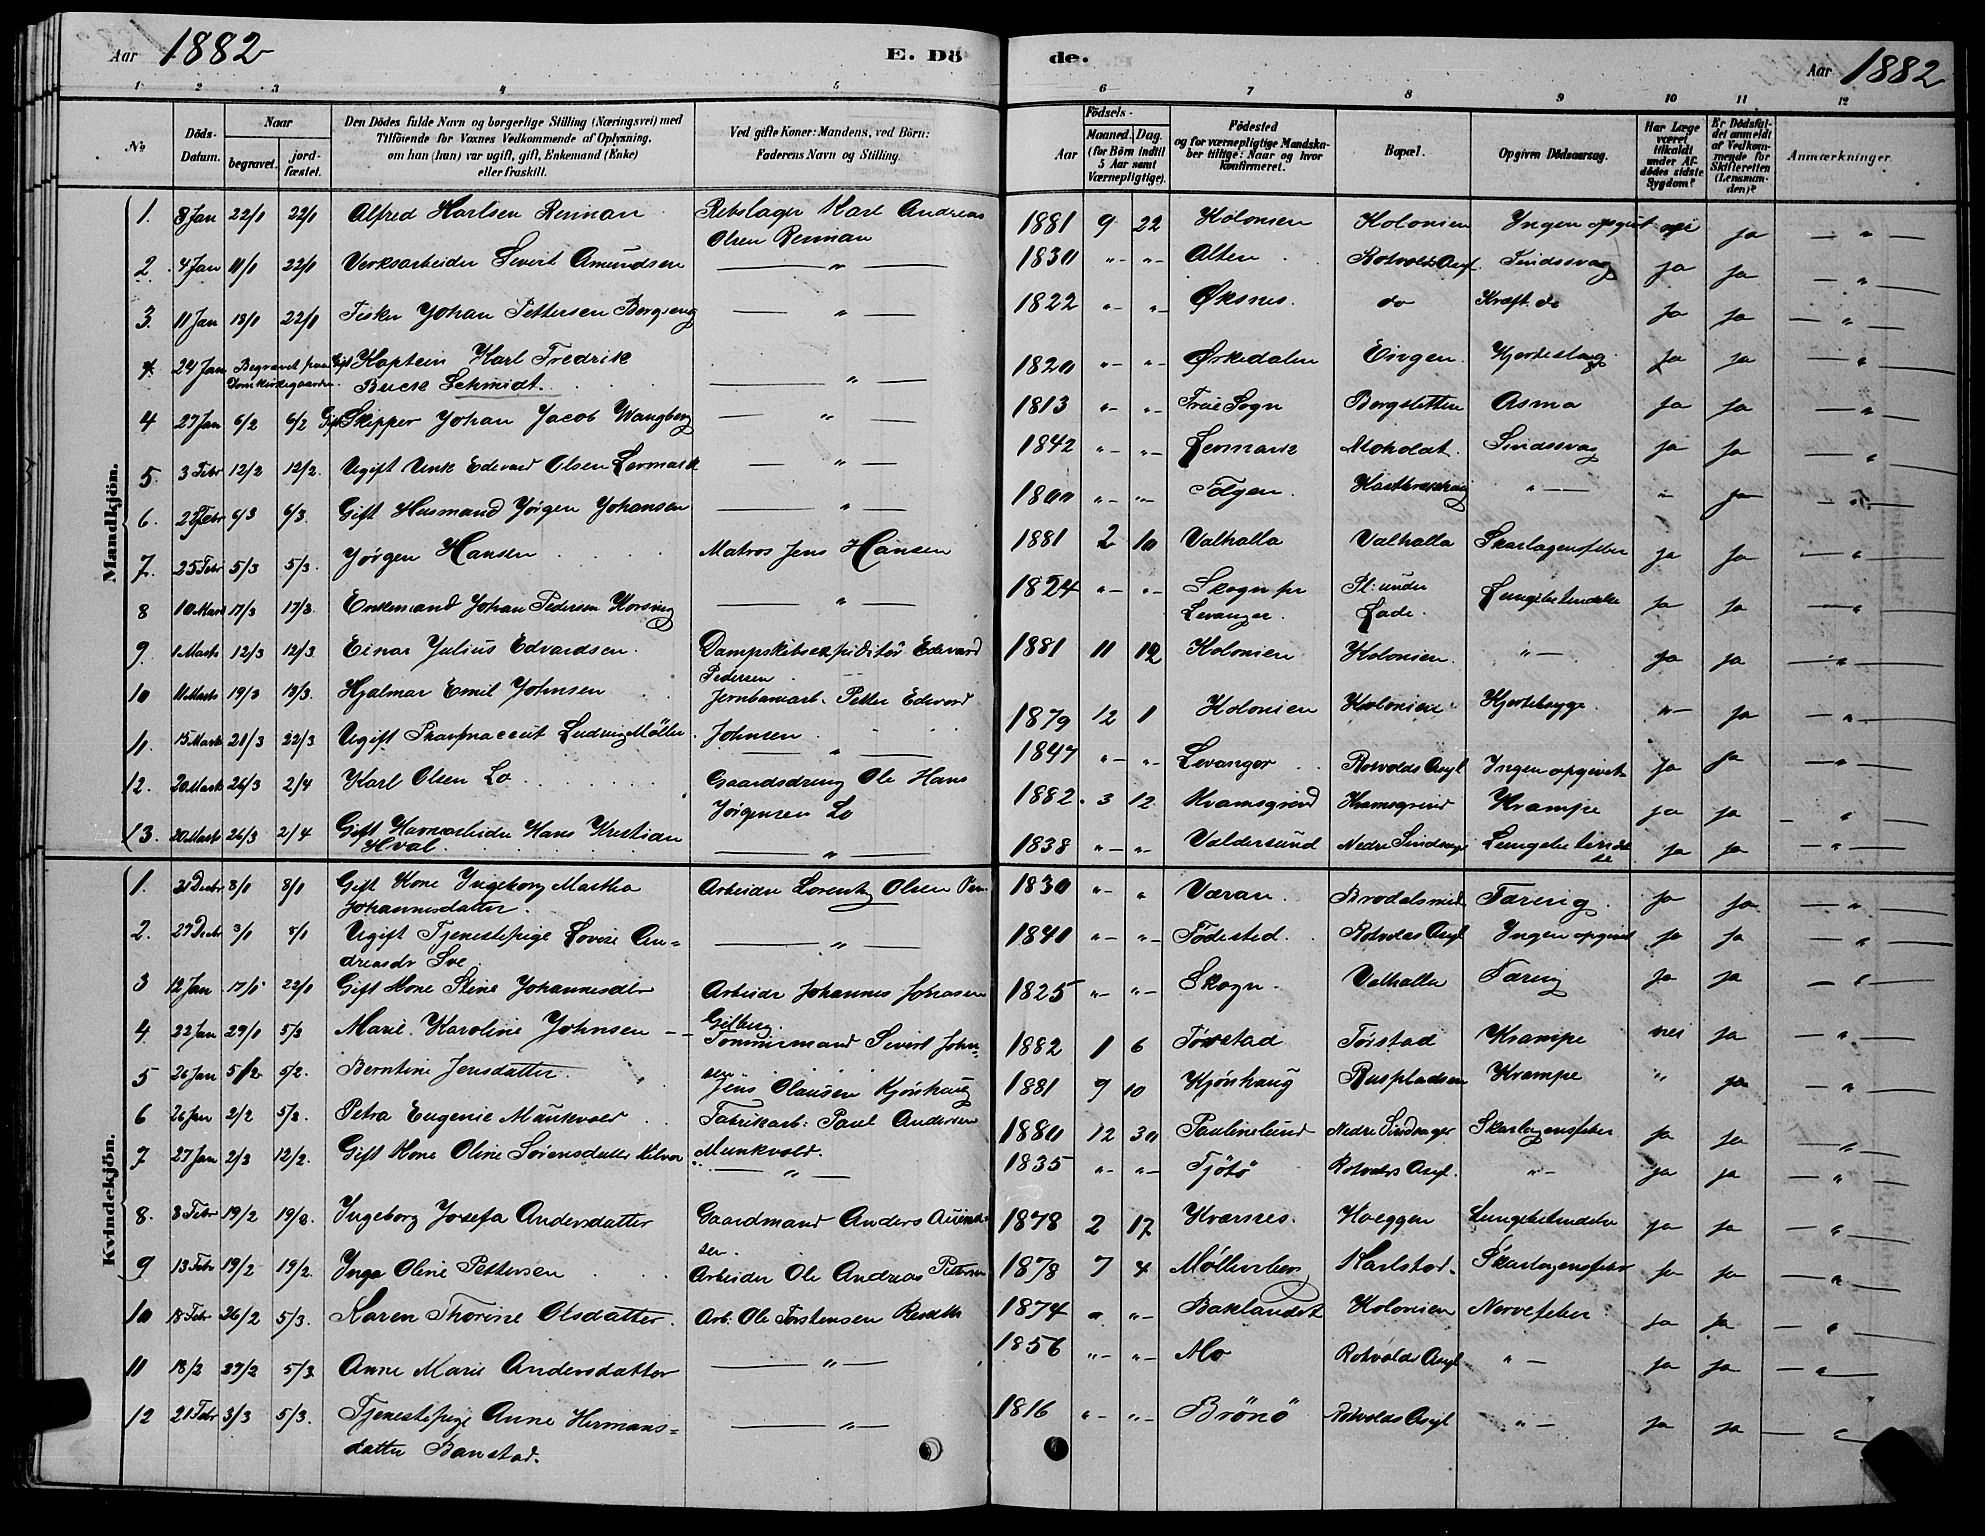 Aar 1882
E. Dö
de.
Aar 1882
1 2 3 4 5 6 7 8 9 10 11 12
No
Döds-Datum.
Naar
begravet.
jord-fæstet.
Den Dödes fulde Navn og borgerlige Stilling (Næringsvei) med
Tilföiende for Voxnes Vedkommende af Oplysning,
om han (hun) var ugift, gift, Enkemand (Enke)
eller fraskilt.
Ved gifte Koner: Mandens, ved Börn:
Faderens Navn og Stilling.
Födsels-
Aar
Maaned. Dag.
(for Börn indtil
5 Aar samt
Værnepligtige).
Födested
og for værnepligtige Mandska-
ber tillige: Naar og hvor
konfirmeret.
Bopæl.
Opgiven Dödsaarsag.
Har Læge
været
tilkaldt
under Af-
dödes sidste
Sygdom?
Er Dödsfal-
det anmeldt
af Vedkom-
mende for
Skifteretten
(Lensman-
den)?
Anmærkninger.
Mandkjön.
1. 8 Jan 22/1 22/1 Alfred Karlsen Reiman Rebslager Karl Andreas 1881 9 22 Kolonien Kolonien Ingen opgivet nei ja — " —
Olsen Reiman
2. 4 Jan 11/1 22/1 Verksarbeider Sivert Amundsen — " — 1830 "- "- Alten Rotvolds Asyl Sindssvag ja ja — " —
3. 11 Jan 18/1 22/1 Fisker Johan Pettersen Bergseng — " — 1822 "- "- Øksnes. do Kræft. do ja ja — " —
4. 24 Jan Begravet paa Gift Kaptein Karl Fredrik 1820 "- "- Ørkedalen Eingen Hjerteslag ja ja — " —
Domkirkegaarden. Buck Schmidt. — " —
4 27 Jan 6/2 6/2 Gift Skipper Johan Jacob Wangberg — " — 1813 "- "- Frue Sogn Borgsletten Asma ja ja — " —
5. 3 Febr 12/2 12/2. Ugift Edevard Olsen Lermark — " — 1842 "- "- Lermark Moholdt. Sindssvag ja ja — " —
6. 2 Febr 6/3 6/3. Gift Husmand Jørgen Johansen — " — 1800 "- "- Tolgen. " — " ja — " —
7. 25 Febr 5/3 5/3. Jørgen Hansen Matros Jens Hansen 1881 2 10 Valhalla Valhalla Skarlagensfeber ja ja — " —
8 10 Mars 17/3 17/3. Enkemand Johan Pedersen Korsing — " — 1824 "- "- Skogn pr Pl. under Lungebetendelse ja ja — " —
Levanger. Lade.
9. 1 Marts 12/3 12/3. Einar Julius Edvardsen. Dampskibsexpiditör Edevard 1881 11 12 Kolonien Kolonien. " — ja ja — " —
Pedersen
10 11 Marts 19/3 19/3. Hjalmar Emil Johnsen Jernbanearb. Petter Edevard 1879 12 1 Kolonien Kolonien Hjertesyge "- ja — " —
11. 15 Marts 21/3 22/3. Ugift Ludvig Møller. Johnsen. — " — 1847 "- "- Levanger Rotvolds Asyl Ingen opgivet ja ja — " —
12. 20 Marts 26/3 2/4 Karl Olsen Lo Gaardsdreng Ole Hans 1882. 3 12 Kvamsgrind Kvamsgrind Krampe ja ja — " —
Jørgensen Lo
13. 20 Marts 26/3 2/4 Gift Havnearbeider Hans Kristian 1838 "- "- Valdersund Nedre Sindsager Lungebetendel- ja ja — " —
Hval. — " — se
Kvindekjön.
1. 21 Decbr 8/1 8/1 Gift Kone Ingeborg Martha Arbeider Lorentz Olsen 1830 "- " Væran. Brodalsmid Tæring. ja ja — " —
Johannesdatter.
2. 27 Decbr 3/1 8/1 Ugift Tjenestepige Lovise An= — " — 1840 "- "- Fødested. Rotvolds Asyl Ingen opgivet ja ja — " —
dreasdr Sve
3 12 Jan 17/1 22/1 Gift Kone Stine Johannesdtr Arbeidr Johannes Johnsen 1825 "- "- Skogn. Valhalla Tæring ja ja — " —
Gilberg.
4. 22 Jan 29/1 5/2 Marie Karoline Johnsen — Tømmermand Sivert John= 1882 1 6 Tørstad Törstad Krampe nei ja — " —
sen
5 26 Jan 5/2 5/2. Berntine Jensdatter. Jens Olausen Kjønhaug 1881 9 10 Kjønhaug Buspladsen Krampe " ja — " —
6 26 Jan 2/2 5/2. Petra Eugenie Munkvold Fabrikarb: Paul Andersen 1880 12 30 Paulinelund Nedre Sindsager Skarlagensfeber ja ja — " —
Munkvold.
7 27 Jan 2/3 12/2. Gift Kone Oline Sørensdatter — " — 1835 "- "- Tjötö Rotvolds Asyl. "- ja ja — " —
8. 8 Febr 19/2 19/2. Ingeborg Josefa Andersdatter Gaardmand Anders 1878 2 17 Kværnes. Hoeggen Lungebetendelse ja ja — " —
sen.
9 13 Febr 19/2 19/2. Inga Oline Pettersen Arbeider Ole Andreas Pettersen 1878 7 4 Møllenberg Karlstad. Skarlagensfeber ja ja — " —
10 18 Febr 26/2 5/3. Karen Thorine Olsdatter. Arb. Ole Torstensen 1874 " "- Baklandet Kolonien Nervefeber ja ja — " —
11 18/2 27/2 5/3 Anne Marie Andersdatter — " — 1856 "- "- Mo Rotvolds Asyl " — ja ja — " —
12 21 Febr 3/3 5/3. Tjenestepige Anne Hermans= — " — 1816 "- "- Brönö Rotvolds Asyl " — ja ja — " —
datter Banstad.